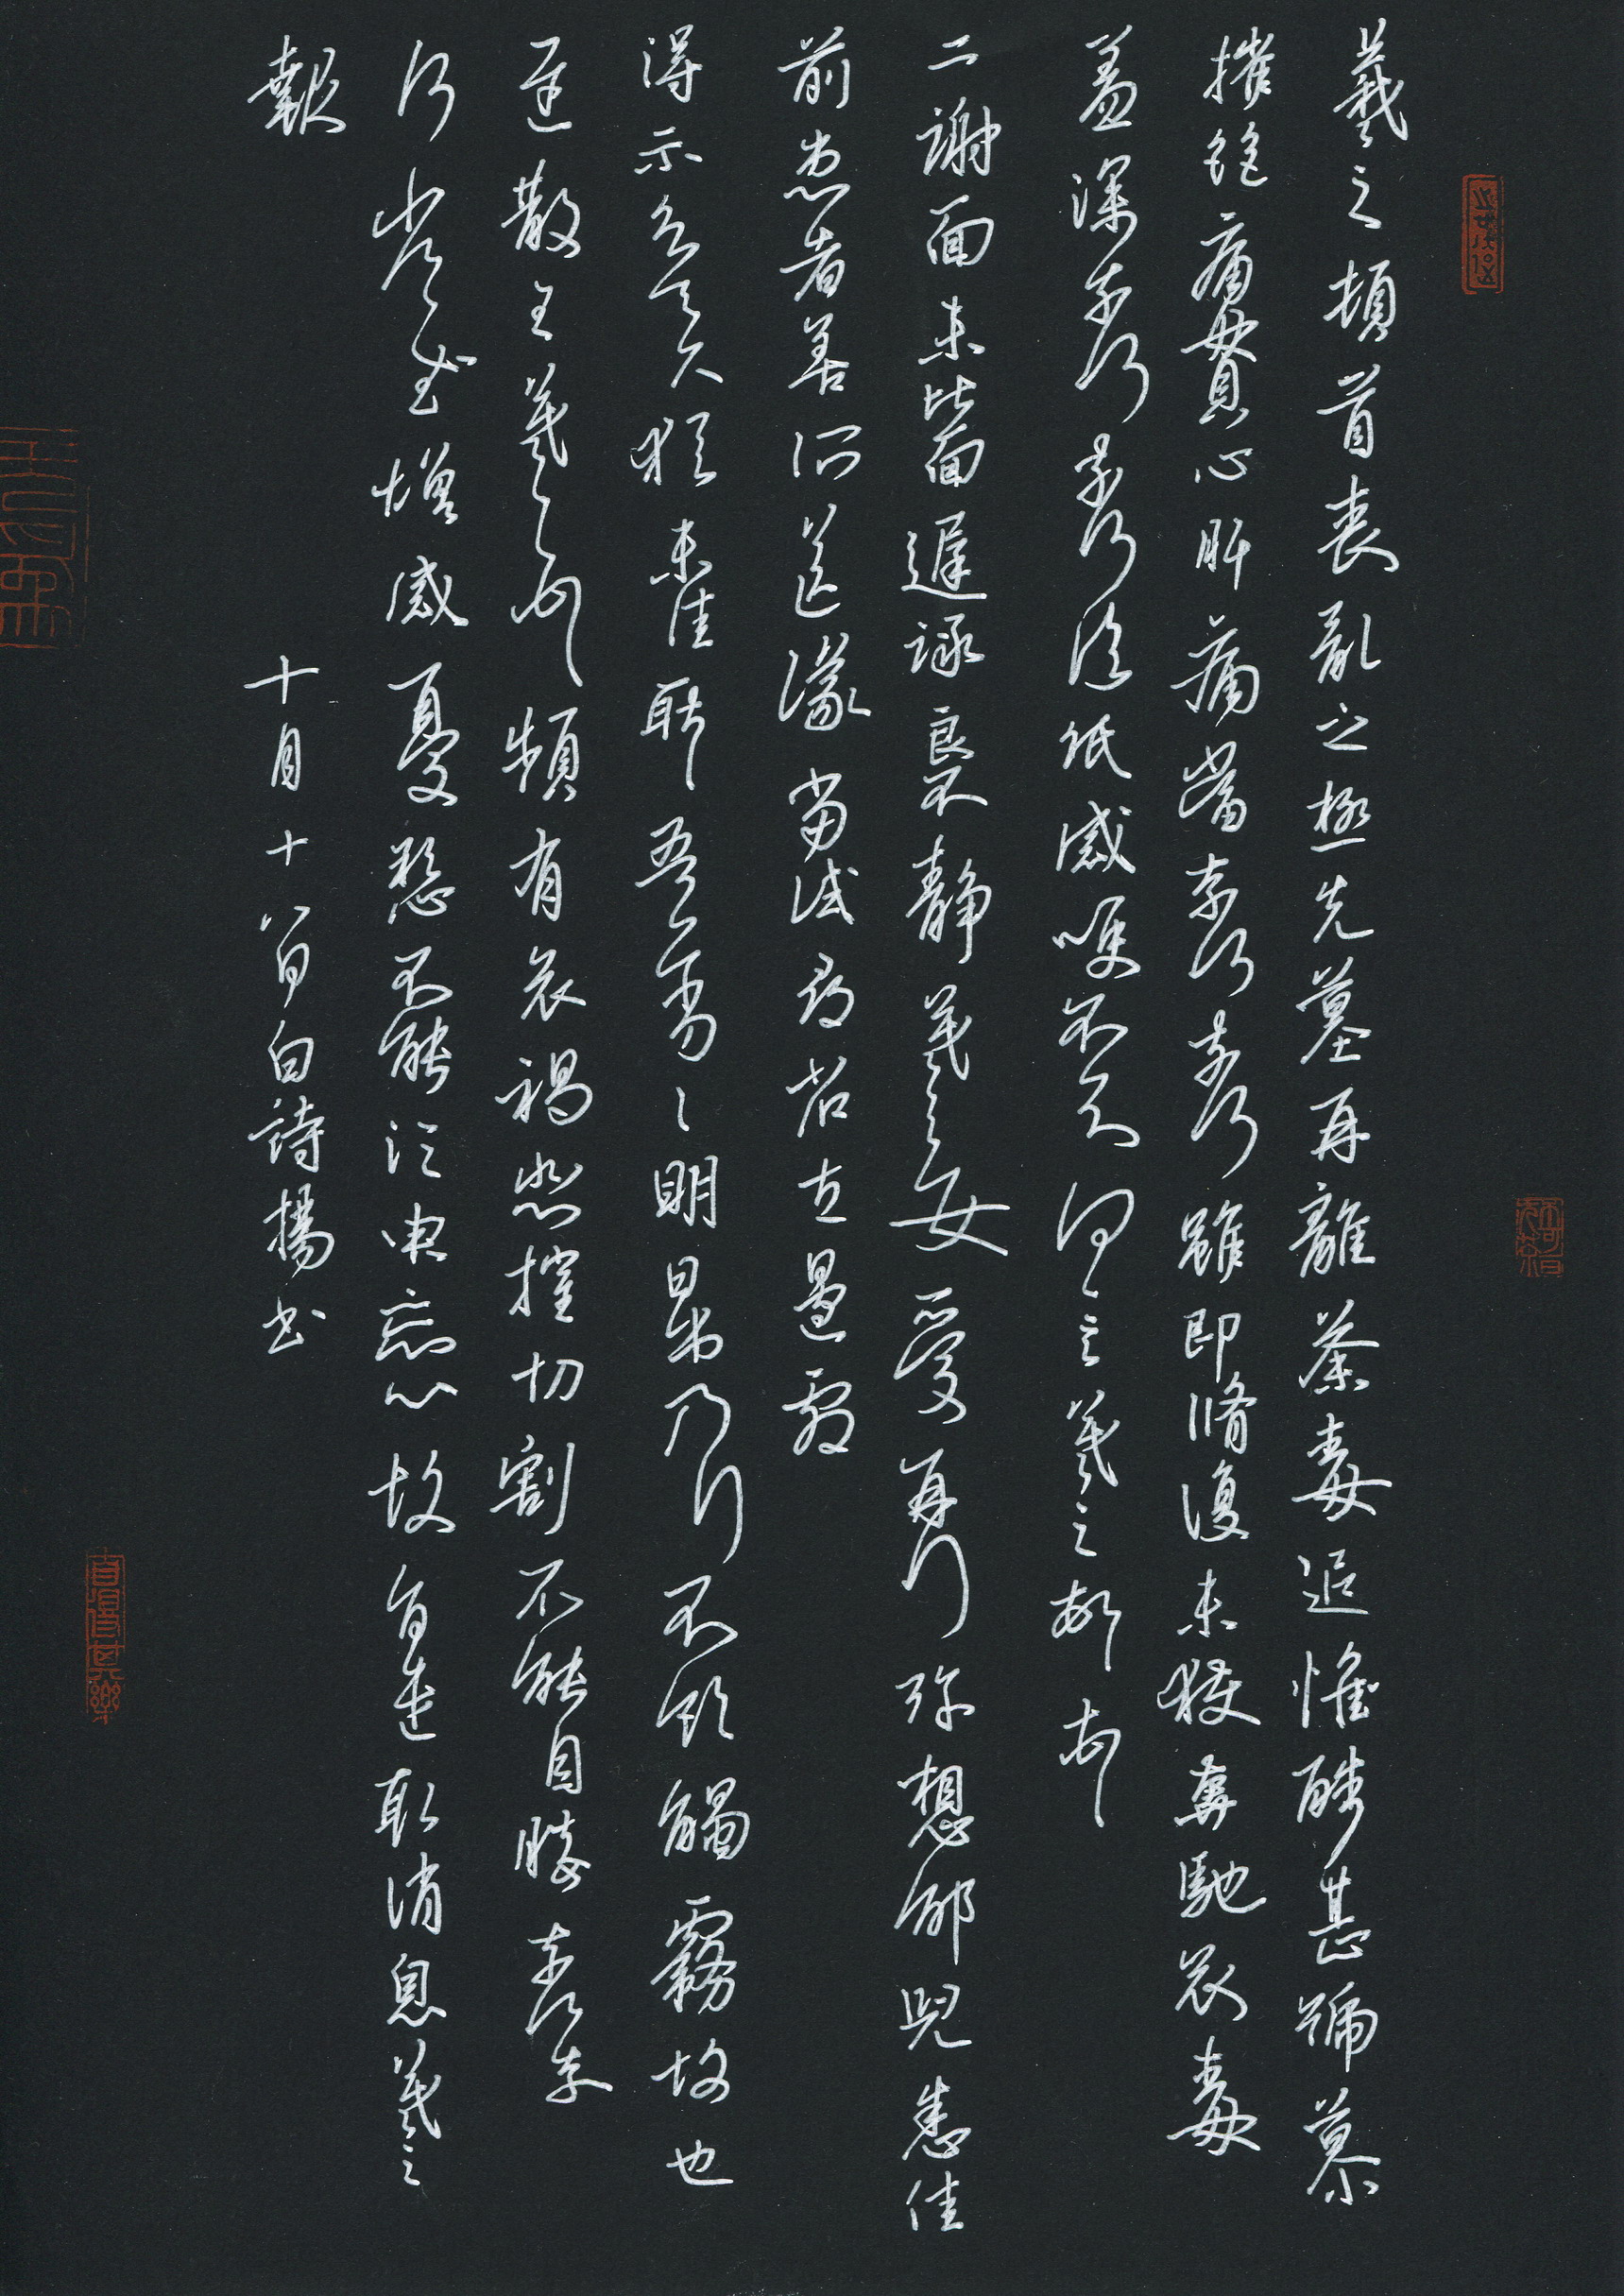 羲之頓首喪亂之極先墓再離荼毒追惟酷甚號慕
摧絕痛貫心肝痛當奈何奈何雖即脩復未獲奔馳哀毒
益深奈何奈何臨紙感哽不知何言羲之頓首
二謝面未比面遲詠良不靜羲之女愛再拜弥想邰兒悉佳
前患者善所送議當試尋省左邊劇
得示知足下猶未佳耿耿吾亦劣劣明日出乃行不欲觸霧故也
遲散王羲之頓首頻有哀禍悲摧切割不能自勝奈何奈
何省慰增感憂愁不能須臾忘心故旨遣取消息羲之
報 十月十八日白詩揚書